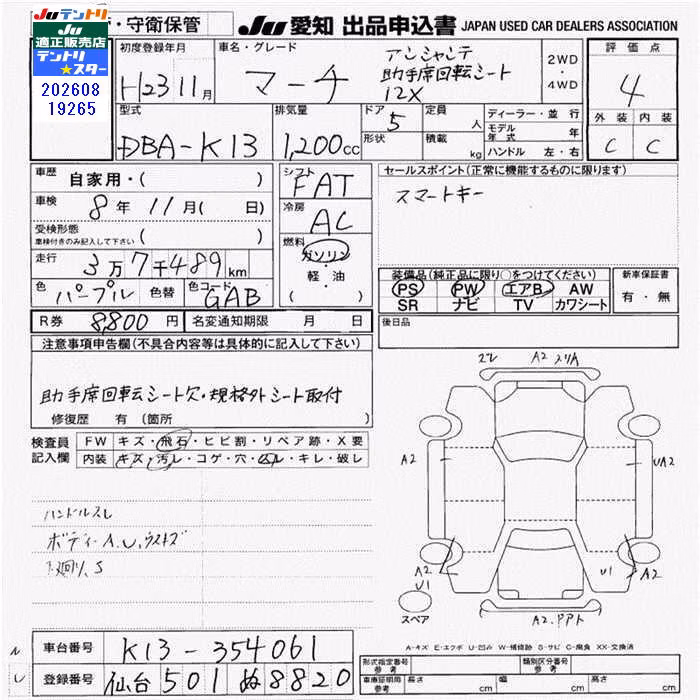 JUテントリ
JU
適正販売店
テントリ
★スター
202608
19265
・守衛保管
JU 愛知 出品申込書 JAPAN USED CAR DEALERS ASSOCIATION
初度登録年月
H23 11月
車名・グレード
マーチ
アンシャンテ
助手席回転シート
12X
2WD
・
4WD
評価点
4
外装 内装
C C
型式
DBA-K13
排気量
1,200cc
ドア
5
形状
定員
人
積載
kg
ディーラー・並行
モデル年式 年
ハンドル 左・右
車歴 自家用・( )
車検 8年11月( 日)
受検形態
車検付きのみ記入して下さい ( )
走行 3万7千489km
色 パープル 色替 色コード GAB
シフト
FAT
冷房
AC
燃料
ガソリン
・
軽・油
( )
セールスポイント(正常に機能するものに限ります)
スマートキー
装備品(純正品に限り○をつけてください)
PS PW エアB AW
SR ナビ TV カワシート
新車保証書
有・無
R券 8,800円 名変通知期限 月 日
後日品
注意事項申告欄(不具合内容等は具体的に記入して下さい)
助手席回転シート欠・規格外シート取付
修復歴 有(箇所 )
検査員
記入欄
FW キズ・飛石・ヒビ割・リペア跡・X要
内装 キズ・汚レ・コゲ・穴・スレ・キレ・破レ
ハンドルスレ
ボディーA.U.ウスキズ
下廻り、S
A2
A2
UA2
A2
U1
U1
A2
スペア
A2.
A-キズ E-エクボ U-凹み W-補修跡 S-サビ C-腐食 XX-交換済
車台番号 K13-354061
登録番号 仙台501ぬ8820
形式指定番号
参考
類別区分番号
参考
車庫証明用
参考
長さ cm 幅 cm 高さ cm